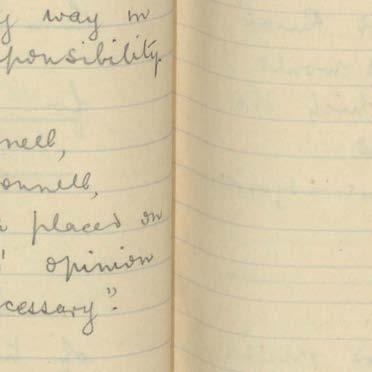 y way in
ponsibility.
nell,
onnell,
placed on
opinion
cessary".